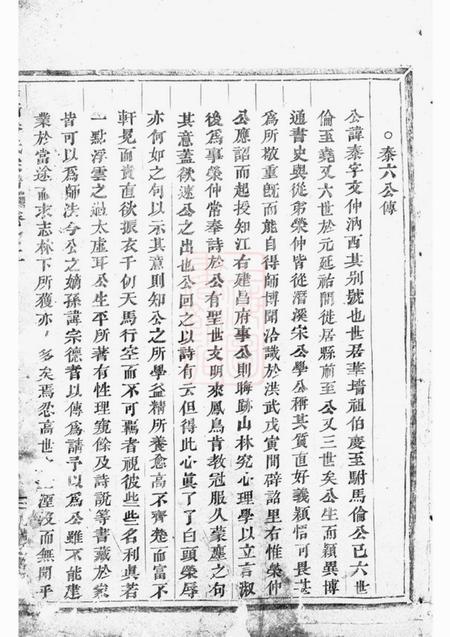 ○泰六公傳
公諱泰字文仲汭西其別號也世居華墻祖伯慶至駙馬倫公已六世
倫至堯又六世於元延祐間徙居縣前至公又三世矣公生而穎異博
通書史與從弟榮仲皆從潛溪宋公學公稱其質直好義穎悟可畏甚
為所敬重旣而能自得師博聞洽識於洪武戊寅間辟詔里右惟榮仲
公應詔而起授知江右建昌府事公則晦跡山林究心理學以立言淑
後為事榮仲常奉詩於公有聖世文明來鳳鳥肯教冠服久蒙塵之句
其意蓋欲速公之出也公回之以詩有云但得此心眞了了白頭榮辱
亦何如之句以示其意則知公之所學益精所養愈高不齊楚而富不
軒冕而貴直欲振衣千仞天馬行空而不可羈者視彼些些名利眞若
一點浮雲之過太虛耳公生平所著有性理窺餘及詩說等書藏於家
皆可以為師法今公之嫡孫諱宗德者以傳為請予以為公雖不能建
業於當途而求志林下所獲亦多矣焉忍高世 湮沒而無聞乎